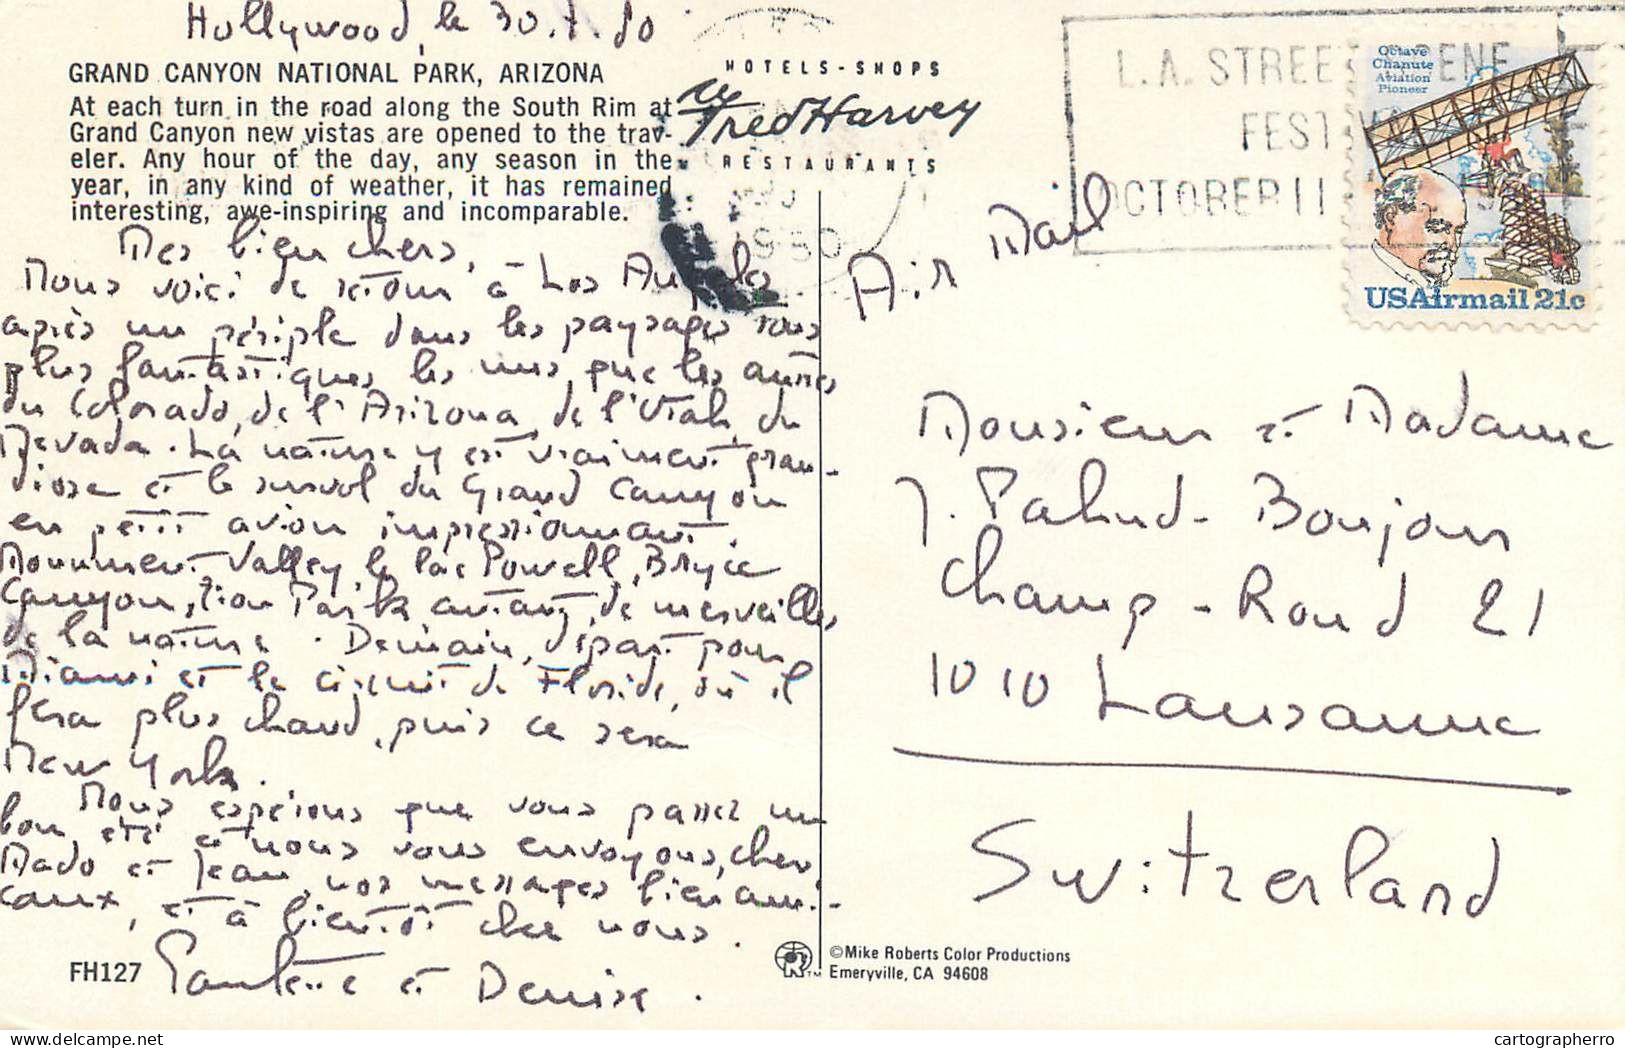 Hollywood, le 30.7.80
GRAND CANYON NATIONAL PARK, ARIZONA
At each turn in the road along the South Rim at
Grand Canyon new vistas are opened to the trav-
eler. Any hour of the day, any season in the
year, in any kind of weather, it has remained
interesting, awe-inspiring and incomparable.
HOTELS-SHOPS
Fred Harvey
RESTAURANTS
1980
L.A. STREET SCENE
FESTIVAL
OCTOBER 11
Octave
Chanute
Aviation
Pioneer
USAirmail 21c
Air Mail
Mes bien chers,
Nous voici de retour à Los Angeles
après un périple dans les paysages tous
plus fantastiques les uns que les autres
du Colorado, de l'Arizona, de l'Utah, du
Nevada. La nature y est vraiment gran-
diose et le survol du Grand Canyon
en petit avion impressionnant.
Monument Valley, le lac Powell, Bryce
Canyon, Zion Park autant de merveilles
de la nature. Demain, départ pour
Miami et le circuit de Floride, où il
fera plus chaud, puis ce sera
New York.
Nous espérons que vous passez un
bon été et nous vous envoyons, chers
Mado et Jean, nos messages bien ami-
caux, et à bientôt chez nous.
et Denise.
Monsieur et Madame
J. Pahud-Bonjour
Champ-Rond 21
1010 Lausanne
Switzerland
FH127
©Mike Roberts Color Productions
Emeryville, CA 94608
cartographerro